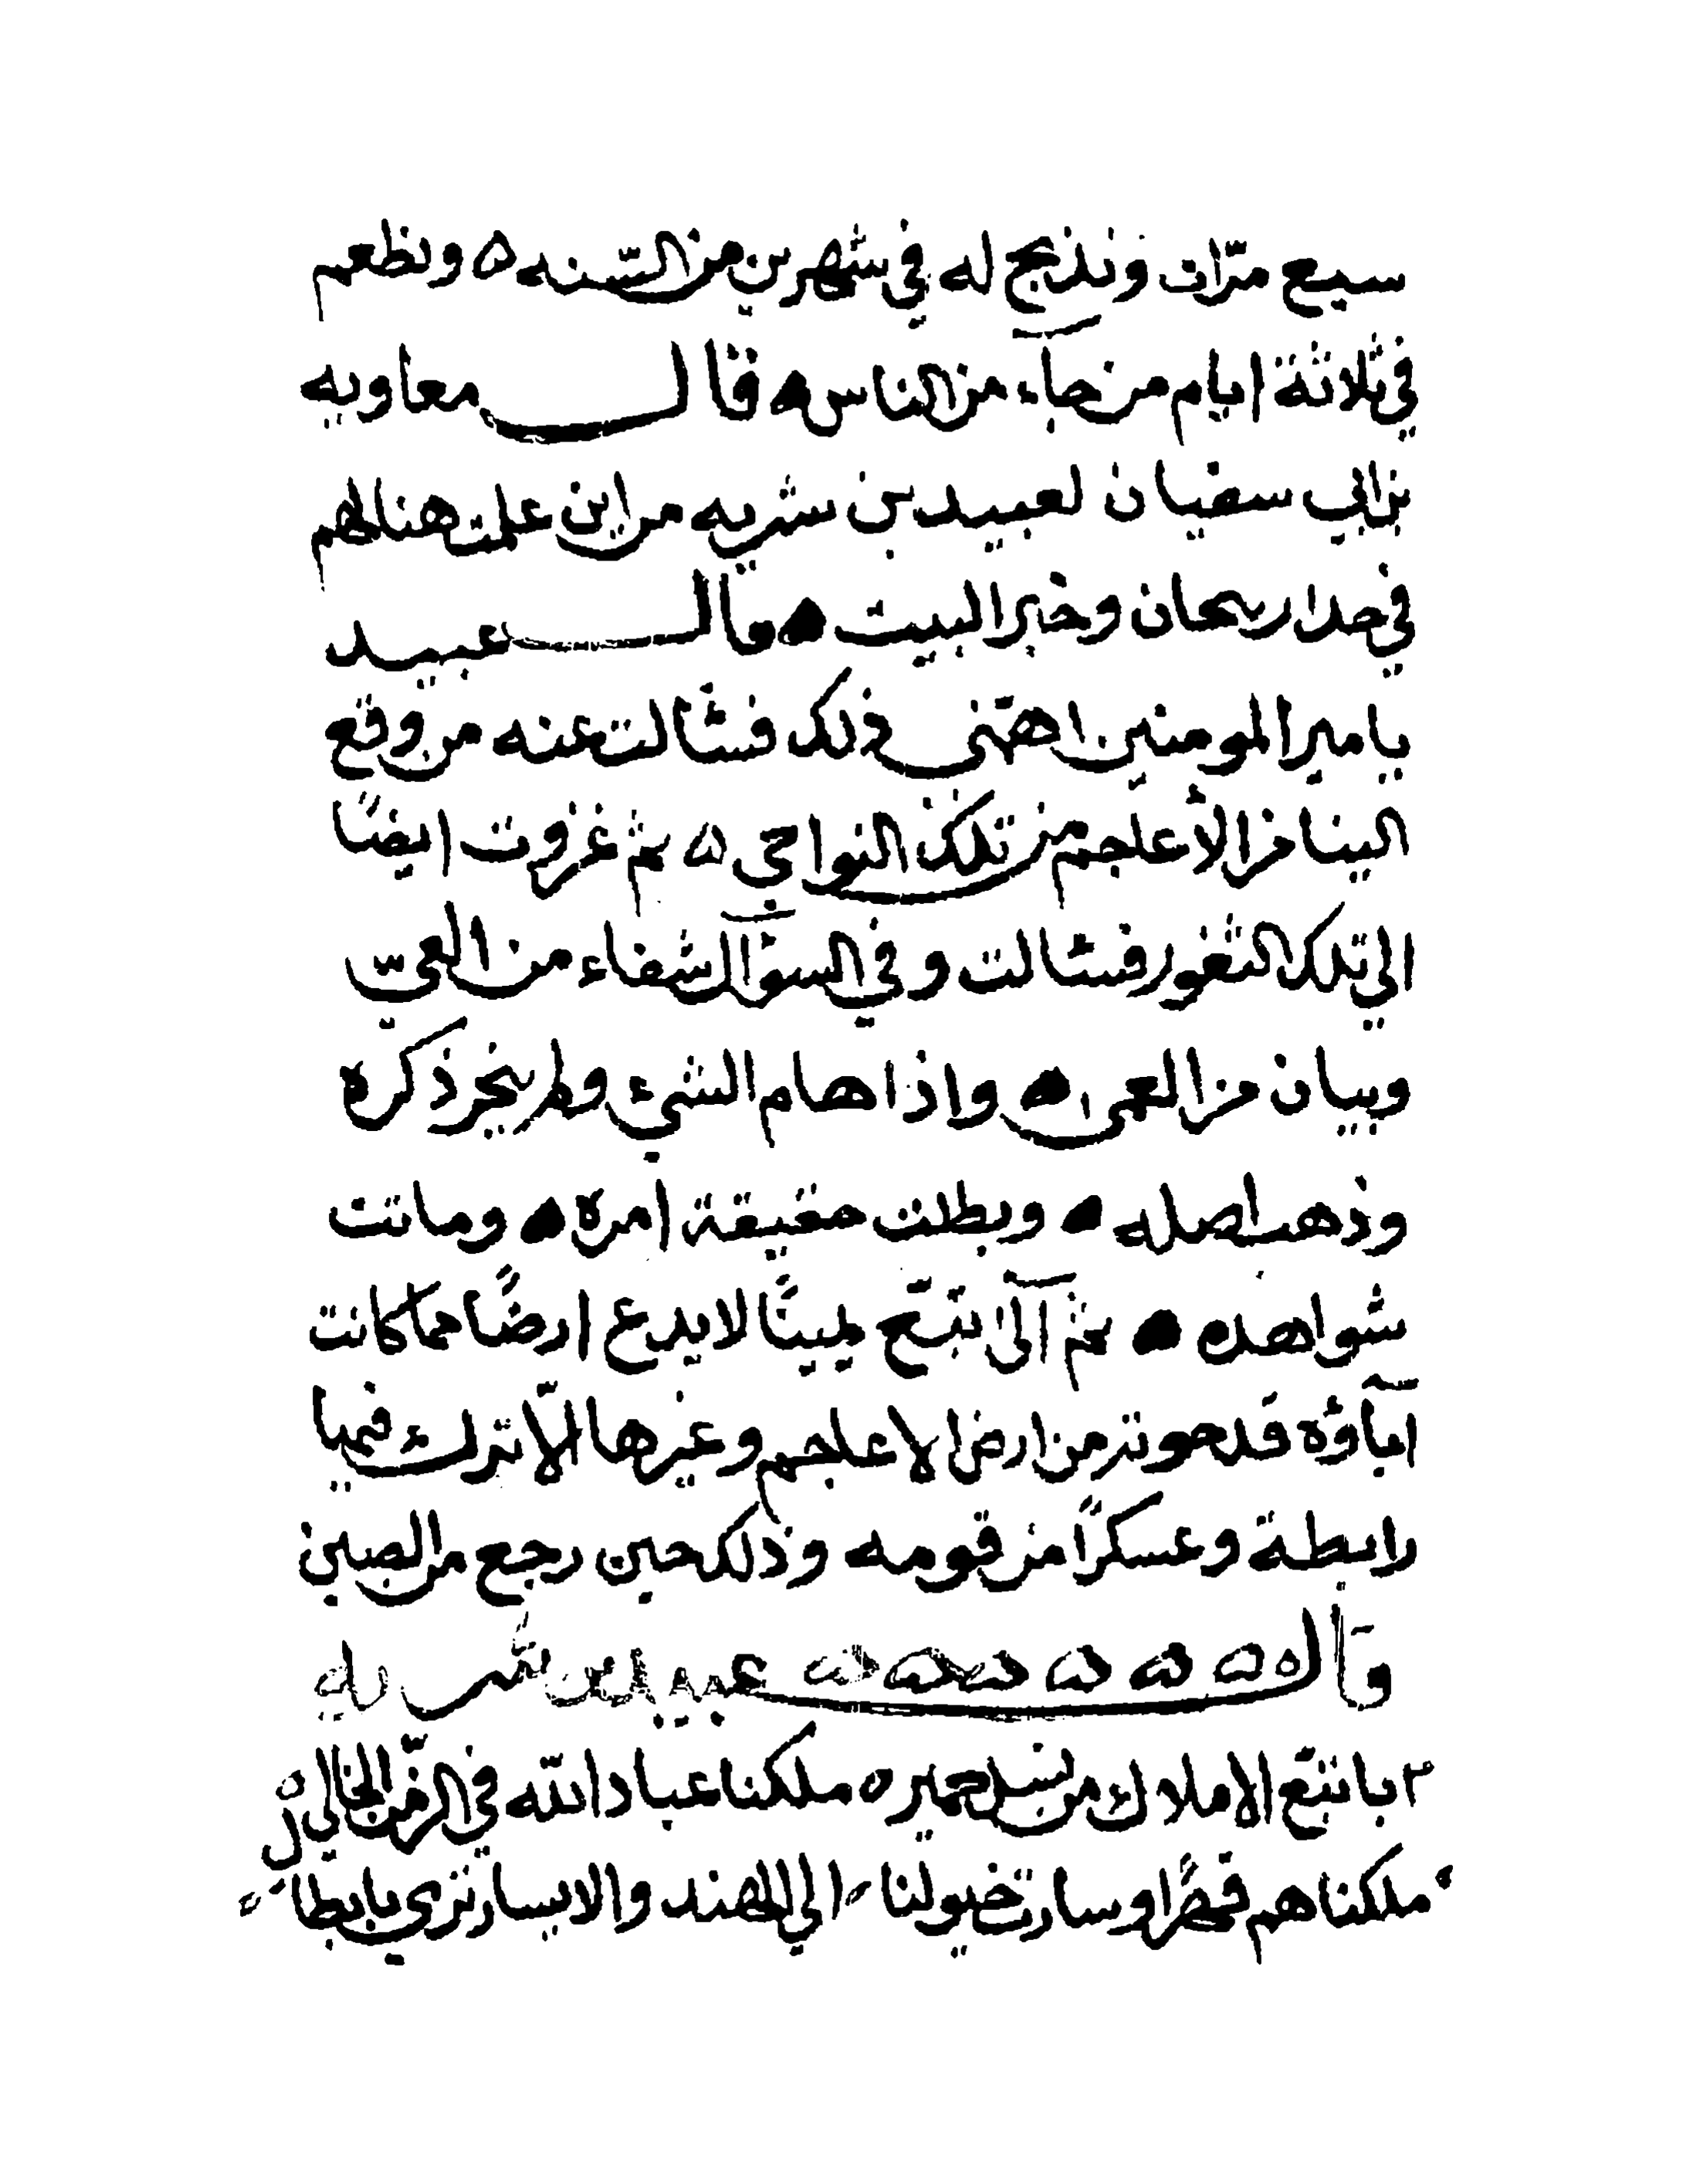 سبع مرّات ونذبح له في شهرين من السّنه ه ونطعم
في ثلاثة ايام من جآء من الناس ه قال معاويه
بن ابي سفيان لعبيد بن شريه من اين علمت هنا لهم
في حدا ريحان وخبر البيت ه قال عبيد
يامير المومنين اهمّني ذلك فسالت عنه من وقع
الينا من الأعاجم من تلك النواحي ه ثم غزوت ايضًا
الي تلك الثغور فسالت وفي السؤآل شفاء من العيّ
وبيان من العمى ه واذا هام الشيء ولم يجر ذكره
وذهب اصله ه وبطلت حقيقة امره ه وماتت
شواهده ه ثم آلى تبّع يمينًا لا يدع ارضًا مما كانت
آباؤه قد حوته من ارض الاعاجم وغيرها الّا ترك فيها
رابطة وعسكرًا من قومه وذلك حين رجع من الصين
قال ه ه ه ه ه عبيد بن شريه
ابا تبّع الاملاك من نسل حمير ه ملكنا عباد الله في الزّمن الخالي
ملكناهم قهرًا وسارت خيولنا الي الهند والا